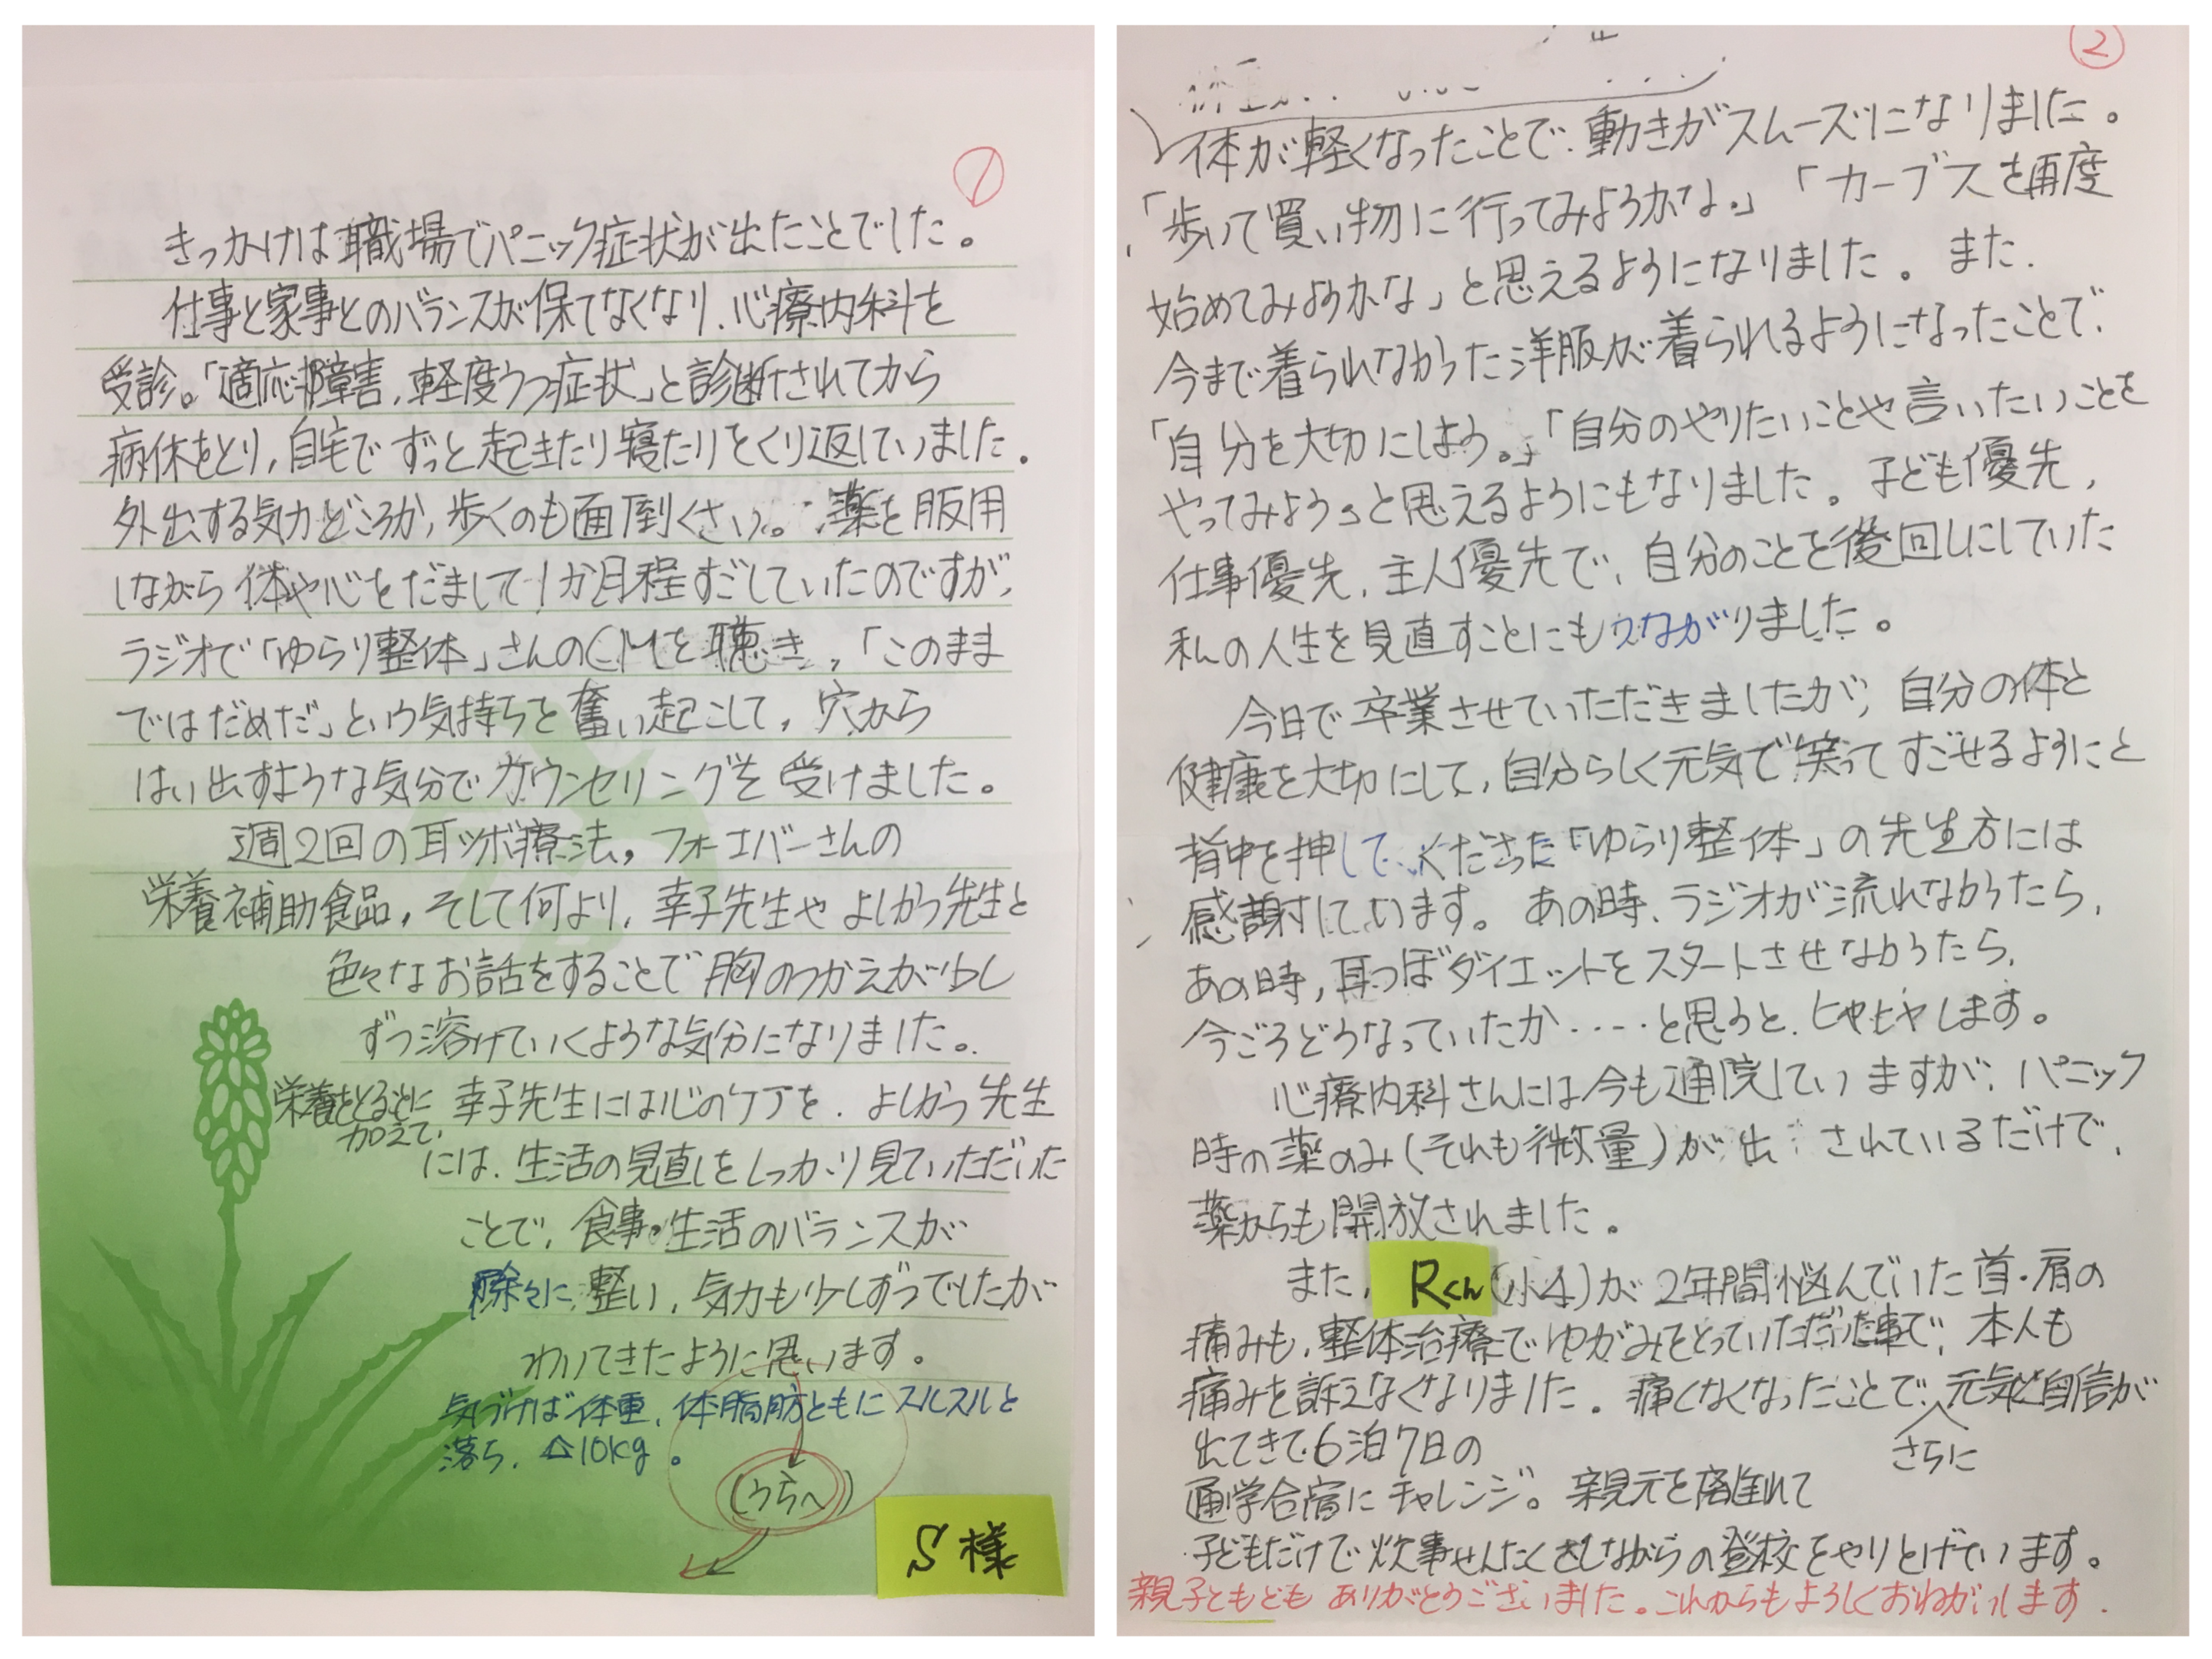 ①
きっかけは職場でパニック症状が出たことでした。
仕事と家事とのバランスが保てなくなり、心療内科を
受診。「適応障害、軽度うつ症状」と診断されてから
病休をとり、自宅でずっと起きたり寝たりをくり返していました。
外出する気力どころか、歩くのも面倒くさい。薬を服用
しながら体や心をだまして1か月程すごしていたのですが、
ラジオで「ゆらり整体」さんのCMを聴き、「このまま
ではだめだ」という気持ちを奮い起こして、穴から
はい出すような気分でカウンセリングを受けました。
週2回の耳ツボ療法、フォーエバーさんの
栄養補助食品、そして何より、幸子先生やよしかつ先生と
色々なお話をすることで胸のつかえが少し
ずつ溶けていくような気分になりました。
栄養をとるとに
加えて、
幸子先生には心のケアを、よしかつ先生
には、生活の見直しをしっかり見ていただいた
ことで、食事・生活のバランスが
除々に整い、気力も少しずつでしたが
わいてきたように思います。
気づけば体重、体脂肪ともにスルスルと
落ち、△10kg。
(うらへ)
S様
②
体が軽くなったことで、動きがスムーズになりました。
「歩いて買い物に行ってみようかな。」「カーブスを再度
始めてみようかな」と思えるようになりました。また、
今まで着られなかった洋服が着られるようになったことで、
「自分を大切にしよう。」「自分のやりたいことや言いたいことを
やってみよう」と思えるようにもなりました。子ども優先、
仕事優先、主人優先で、自分のことを後回しにしていた
私の人生を見直すことにもつながりました。
今日で卒業させていただきましたが、自分の体と
健康を大切にして、自分らしく元気で笑ってすごせるようにと
背中を押してくださった「ゆらり整体」の先生方には
感謝しています。あの時、ラジオが流れなかったら、
あの時、耳つぼダイエットをスタートさせなかったら、
今ごろどうなっていたか‥‥と思うと、ヒヤヒヤします。
心療内科さんには今も通院していますが、パニック
時の薬のみ(それも微量)が出されているだけで、
薬からも開放されました。
また、Rくん(小4)が2年間悩んでいた首・肩の
痛みも、整体治療でゆがみをとっていただいた事で、本人も
痛みを訴えなくなりました。痛くなくなったことで、元気と自信が
さらに
出てきて6泊7日の
通学合宿にチャレンジ。親元を離れて
子どもだけで炊事せんたくをしながらの登校をやりとげています。
親子ともども ありがとうございました。これからもよろしくおねがいします。